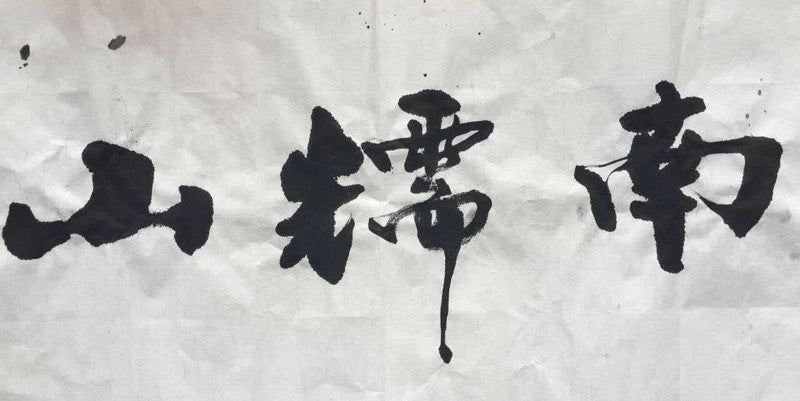 南糯山